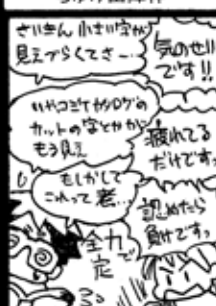 さいきん 小さい字が
見えづらくてさー…
気のせい
です!!
いやコミケカタログの
カットの字とかが
もう見え
疲れてる
だけですっ
もしかして
これって 老…
認めたら
負けですっ
全力で
否定